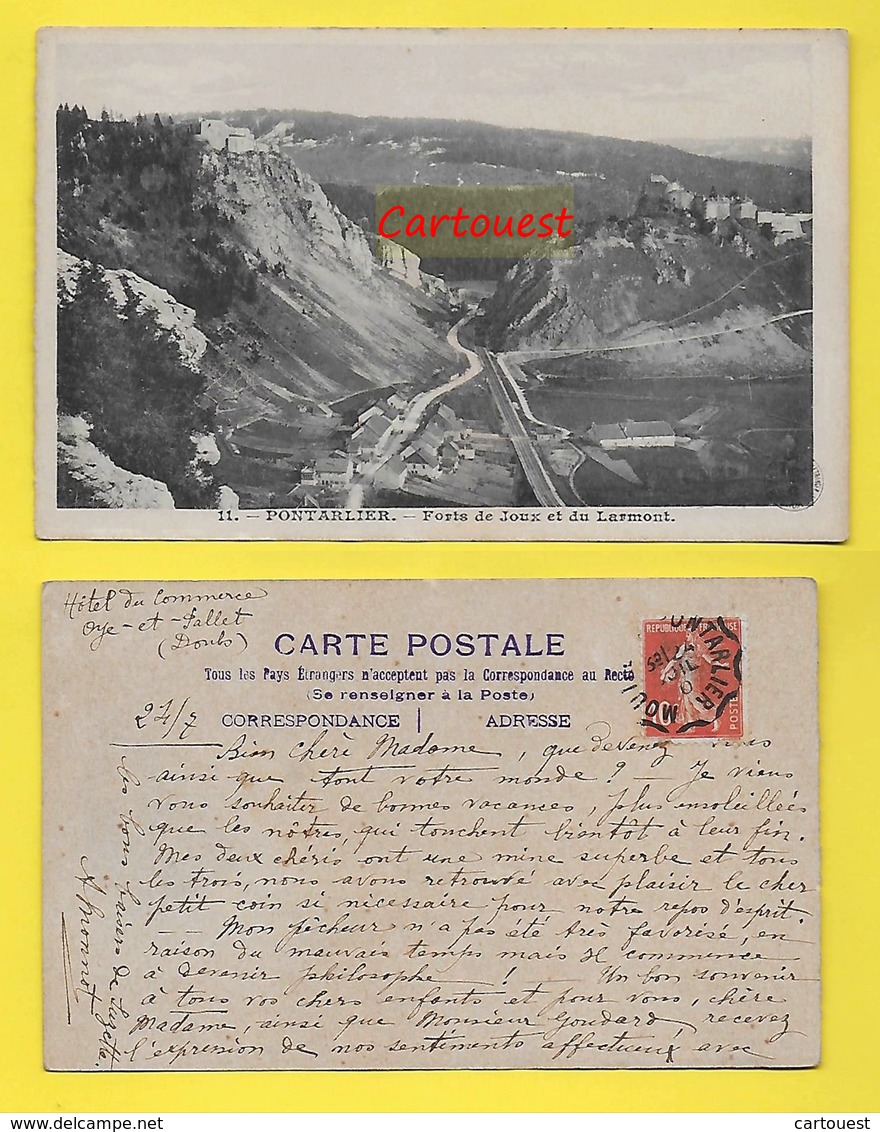 Cartouest
11. — PONTARLIER. — Forts de Joux et du Larmont.
Hôtel du Commerce
Oye-et-Pallet
(Doubs)
CARTE POSTALE
Tous les Pays Étrangers n'acceptent pas la Correspondance au Recto
(Se renseigner à la Poste)
CORRESPONDANCE
ADRESSE
REPUBLIQUE FRANÇAISE
POSTES
10
PONTARLIER
MOU
27/7
Bien chère Madame, que devenez vous
ainsi que tout votre monde ? — Je viens
vous souhaiter de bonnes vacances, plus ensoleillées
que les nôtres, qui touchent bientôt à leur fin.
Mes deux chéris ont une mine superbe et tous
les trois, nous avons retrouvé avec plaisir le cher
petit coin si nécessaire pour notre repos d'esprit.
— — Mon pêcheur n'a pas été très favorisé, en
raison du mauvais temps mais il commence
à devenir philosophe ! — Un bon souvenir
à tous vos chers enfants et pour vous, chère
Madame, ainsi que Monsieur Goudard, recevez
l'expression de nos sentiments affectueux avec
les bons baisers de Suzette.
A Monnot
cartouest